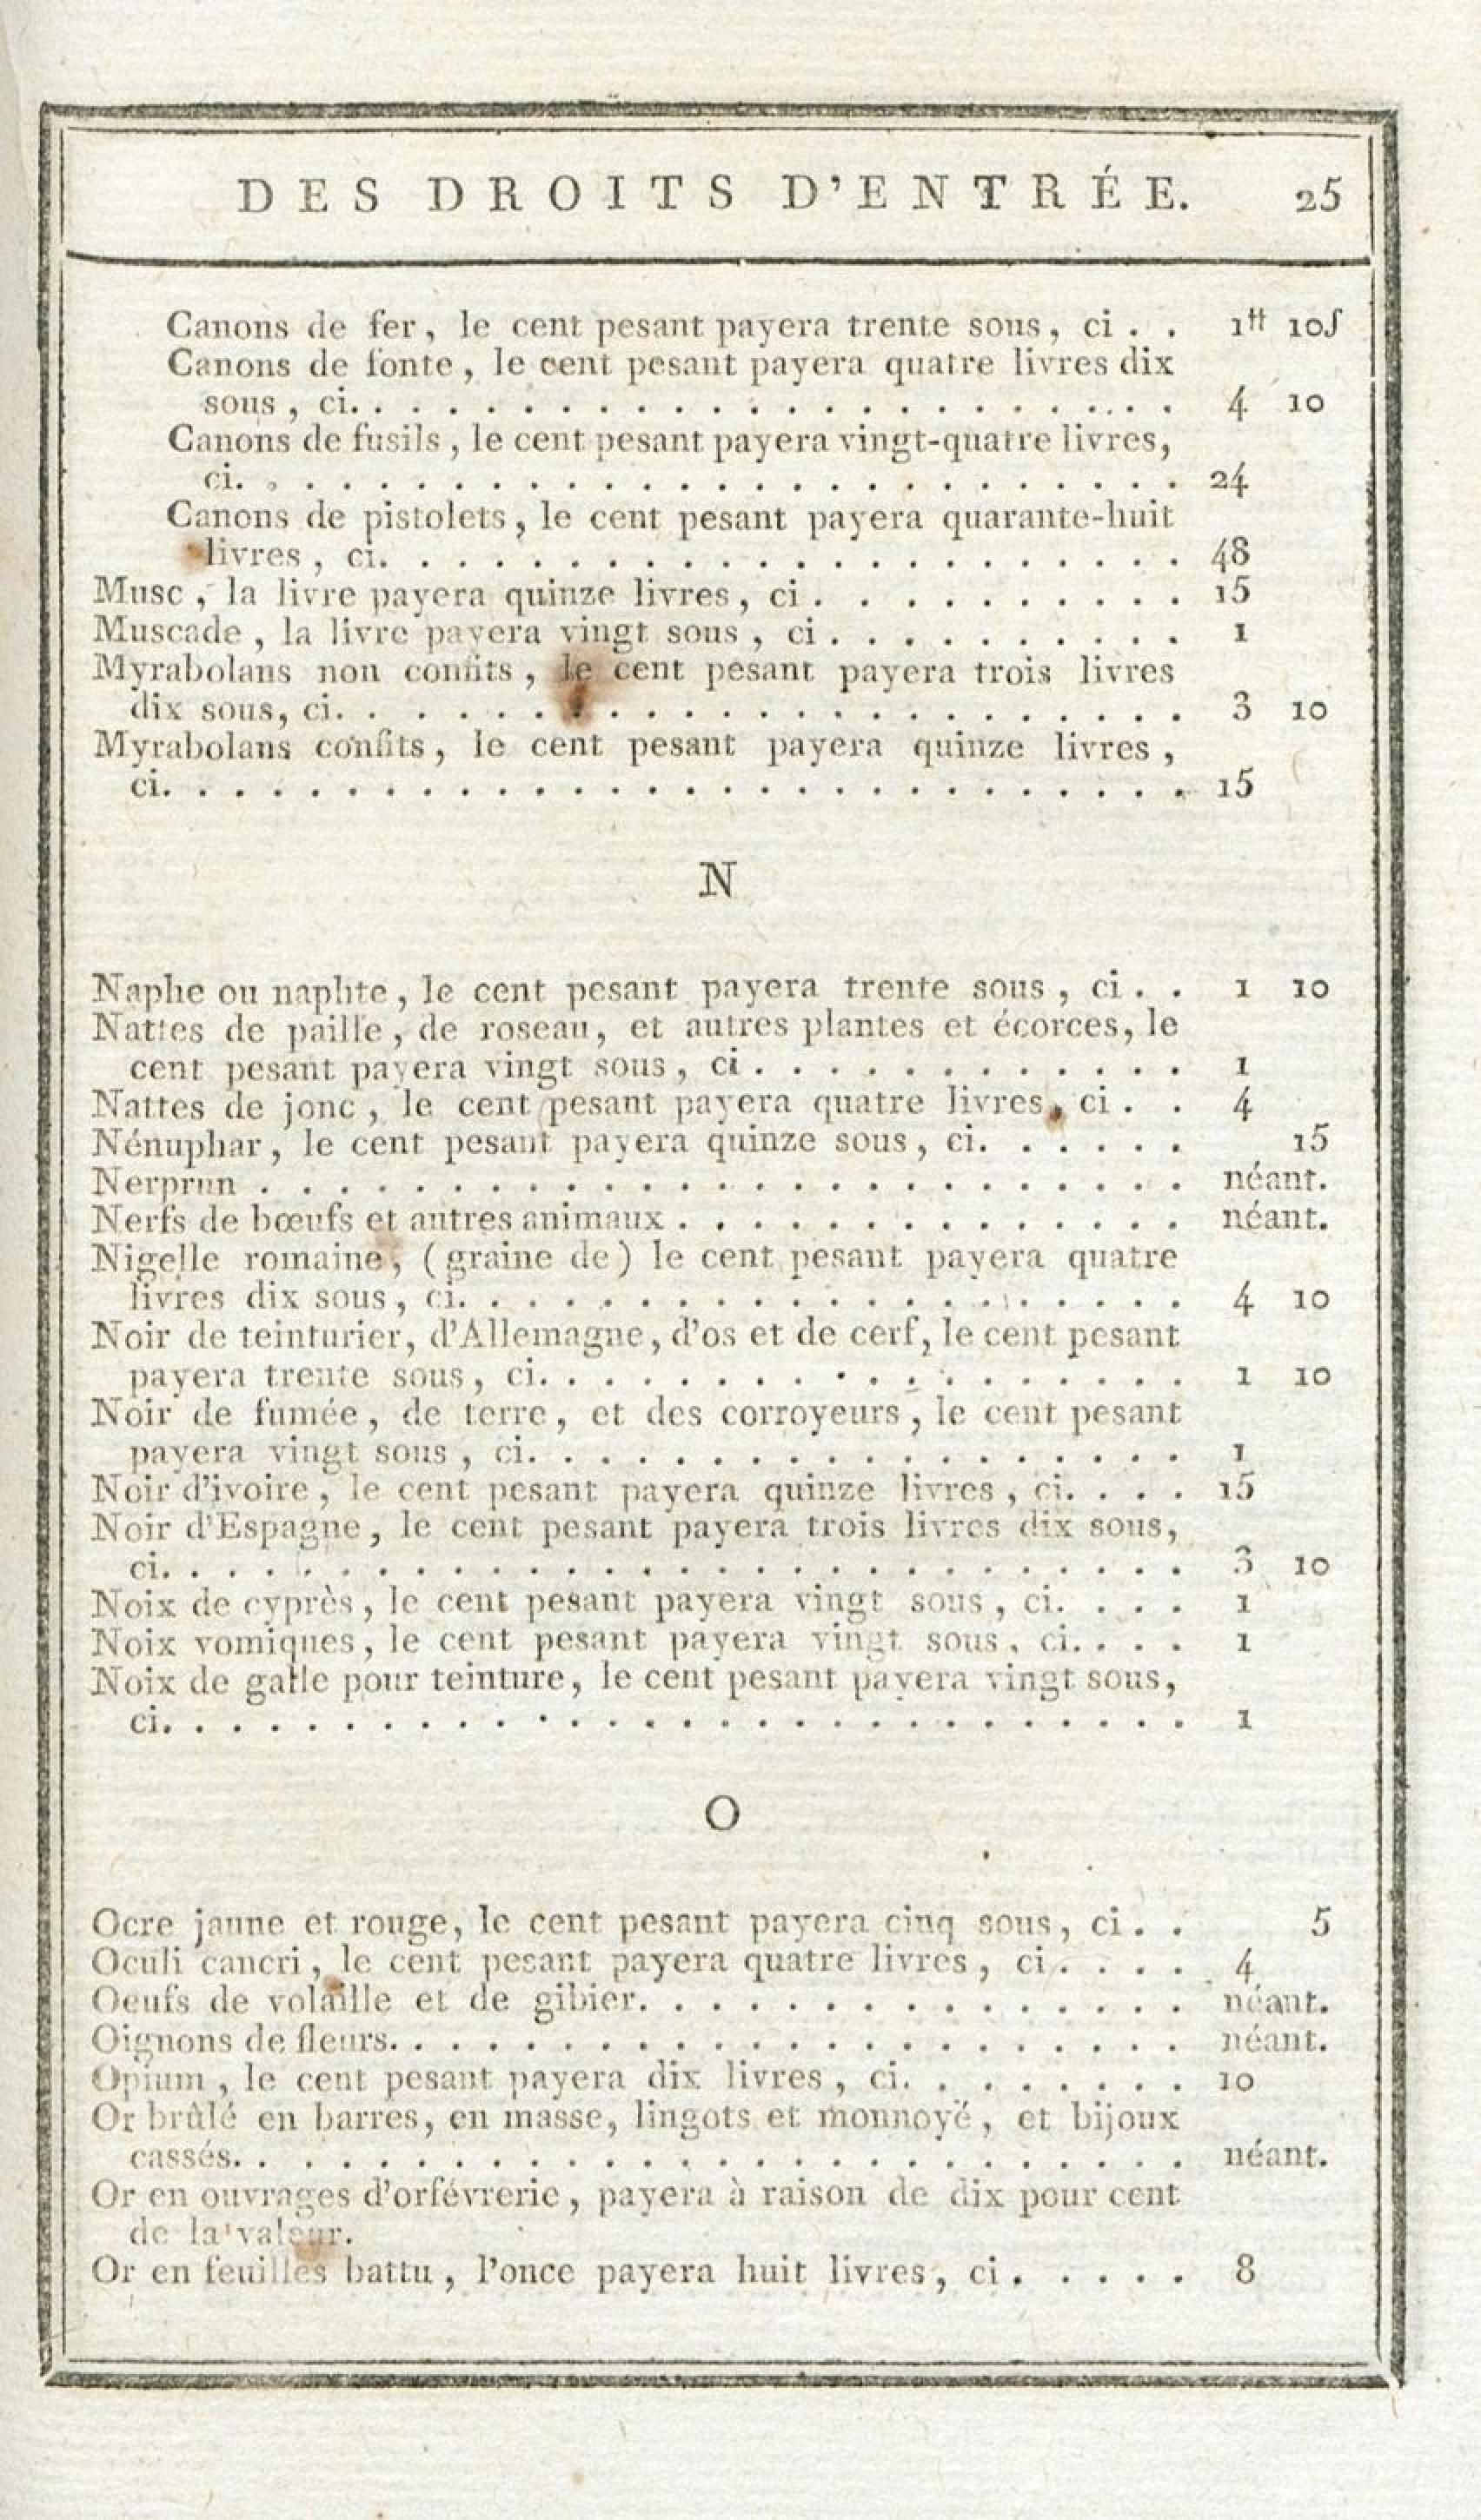 DES DROITS D'ENTRÉE. 25
Canons de fer, le cent pesant payera trente sous, ci . . 1tt 10ſ
Canons de fonte, le cent pesant payera quatre livres dix
sous, ci. . . . . . . . . . . . . . . . . . . . . . . 4 10
Canons de fusils, le cent pesant payera vingt-quatre livres,
ci. . . . . . . . . . . . . . . . . . . . . . . . . . 24
Canons de pistolets, le cent pesant payera quarante-huit
livres, ci. . . . . . . . . . . . . . . . . . . . . . 48
Musc, la livre payera quinze livres, ci . . . . . . . . . . 15
Muscade, la livre payera vingt sous, ci . . . . . . . . . . 1
Myrabolans non confits, le cent pesant payera trois livres
dix sous, ci. . . . . . . . . . . . . . . . . . . . . . . 3 10
Myrabolans confits, le cent pesant payera quinze livres,
ci. . . . . . . . . . . . . . . . . . . . . . . . . . . . 15
N
Naphe ou naphte, le cent pesant payera trente sous, ci . . 1 10
Nattes de paille, de roseau, et autres plantes et écorces, le
cent pesant payera vingt sous, ci . . . . . . . . . . . . 1
Nattes de jonc, le cent pesant payera quatre livres, ci . . 4
Nénuphar, le cent pesant payera quinze sous, ci. . . . . . 15
Nerprun . . . . . . . . . . . . . . . . . . . . . . . . . néant.
Nerfs de bœufs et autres animaux . . . . . . . . . . . . . . néant.
Nigelle romaine, (graine de) le cent pesant payera quatre
livres dix sous, ci. . . . . . . . . . . . . . . . . . . . 4 10
Noir de teinturier, d'Allemagne, d'os et de cerf, le cent pesant
payera trente sous, ci. . . . . . . . . . . . . . . . . . 1 10
Noir de fumée, de terre, et des corroyeurs, le cent pesant
payera vingt sous, ci. . . . . . . . . . . . . . . . . . . 1
Noir d'ivoire, le cent pesant payera quinze livres, ci. . . . 15
Noir d'Espagne, le cent pesant payera trois livres dix sous,
ci. . . . . . . . . . . . . . . . . . . . . . . . . . . . 3 10
Noix de cyprès, le cent pesant payera vingt sous, ci. . . . 1
Noix vomiques, le cent pesant payera vingt sous, ci. . . . 1
Noix de galle pour teinture, le cent pesant payera vingt sous,
ci. . . . . . . . . . . . . . . . . . . . . . . . . . . . 1
O
Ocre jaune et rouge, le cent pesant payera cinq sous, ci . . 5
Oculi cancri, le cent pesant payera quatre livres, ci . . . . 4
Oeufs de volaille et de gibier. . . . . . . . . . . . . . . néant.
Oignons de fleurs. . . . . . . . . . . . . . . . . . . . . . néant.
Opium, le cent pesant payera dix livres, ci. . . . . . . . 10
Or brûlé en barres, en masse, lingots et monnoyé, et bijoux
cassés. . . . . . . . . . . . . . . . . . . . . . . . . . néant.
Or en ouvrages d'orfévrerie, payera à raison de dix pour cent
de la valeur.
Or en feuilles battu, l'once payera huit livres, ci . . . . . 8